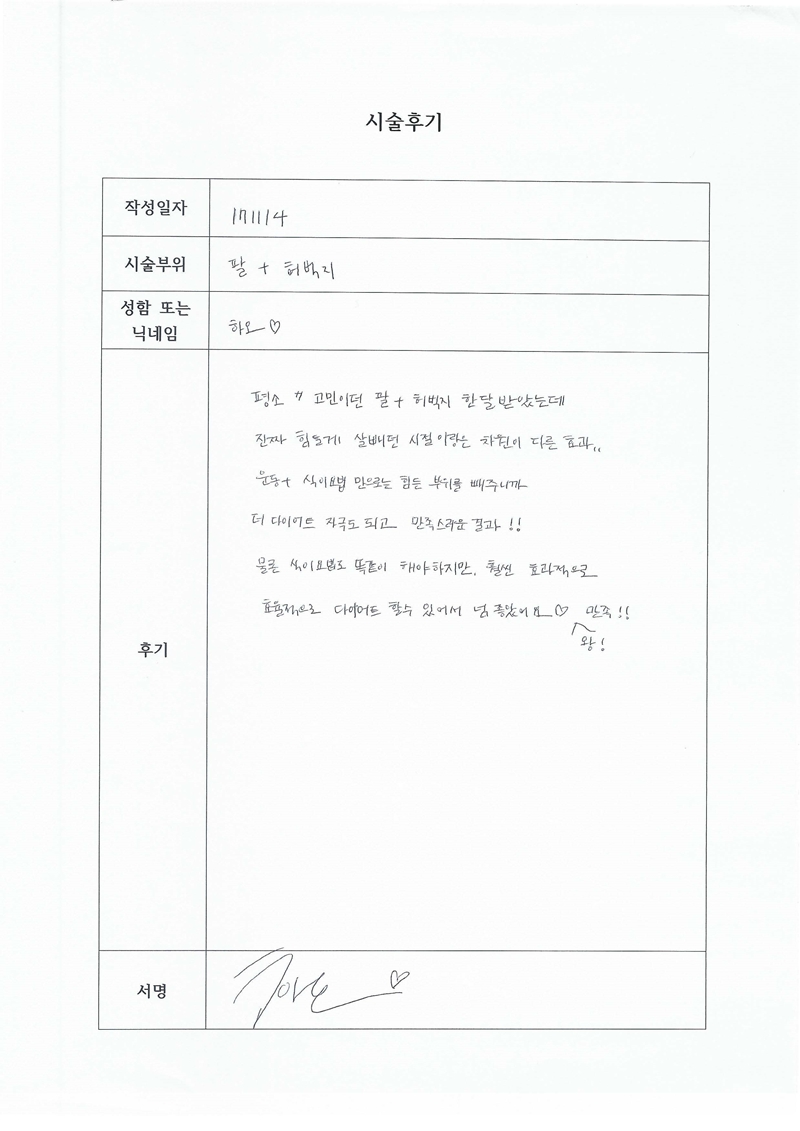 시술후기
작성일자
171114
시술부위
팔 + 허벅지
성함 또는
닉네임
하오♡
평소 고민이던 팔 + 허벅지 한달 받았는데
진짜 힘들게 살빼던 시절이랑은 차원이 다른 효과..
운동 + 식이요법 만으로는 힘든 부위를 빼주니까
더 다이어트 자극도 되고 만족스러운 결과!!
물론 식이요법도 똑같이 해야하지만, 훨씬 효과적으로
효율적으로 다이어트 할수 있어서 넘 좋았어요♡ 만족!!
왕!
후기
서명
하오♡